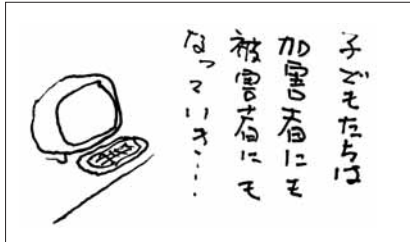 子どもたちは
加害者にも
被害者にも
なっていき…